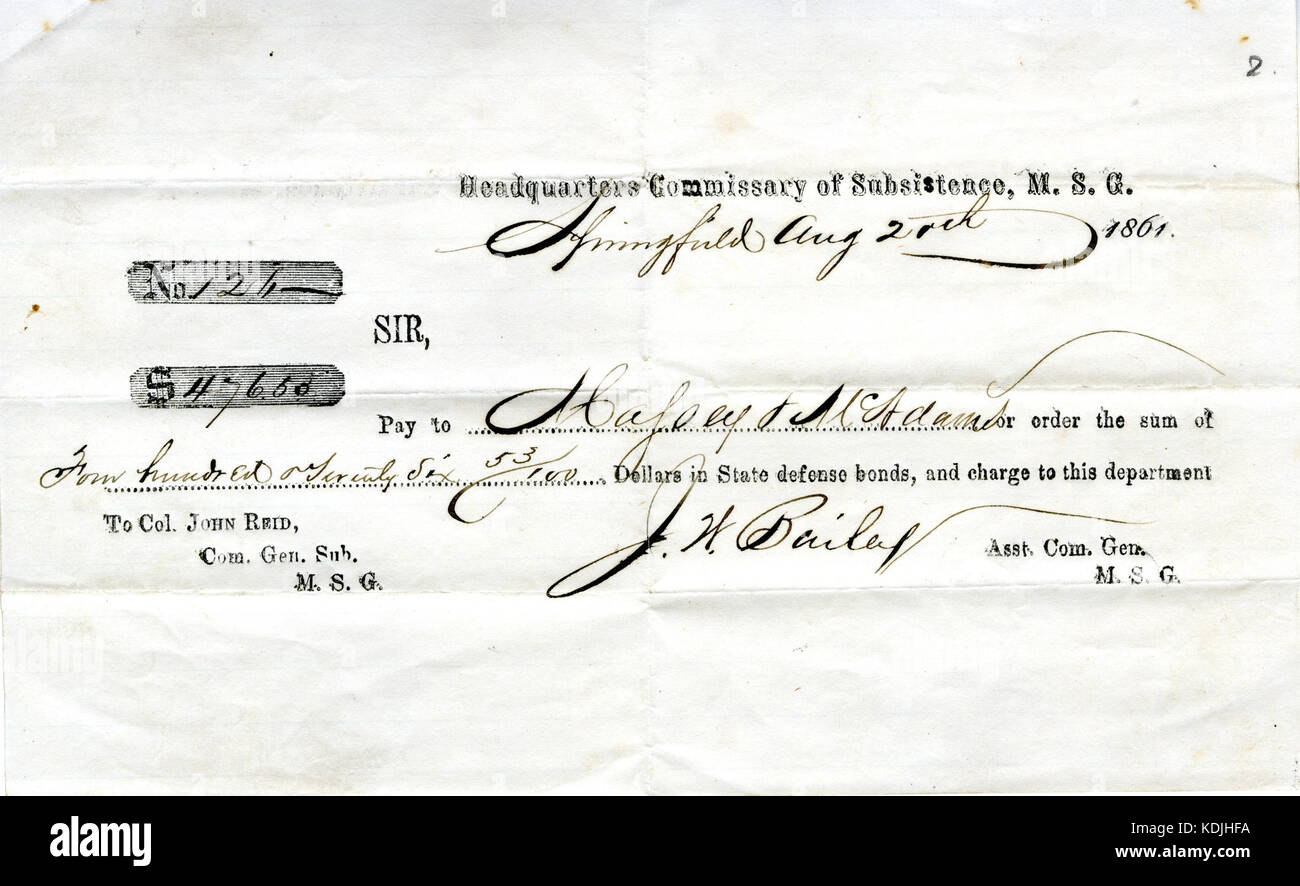 2.
Headquarters Commissary of Subsistence, M. S. G.
Springfield Aug 20th 1861.
No. 126
SIR,
$ 476.53
Pay to Massey & McAdams or order the sum of
Four hundred & Seventy Six 53/100 Dollars in State defense bonds, and charge to this department
To Col. JOHN REID,
Com. Gen. Sub.
M. S. G.
J. W. Bailey Asst. Com. Gen.
M. S. G.
alamy stock photo
KDJHFA
www.alamy.com